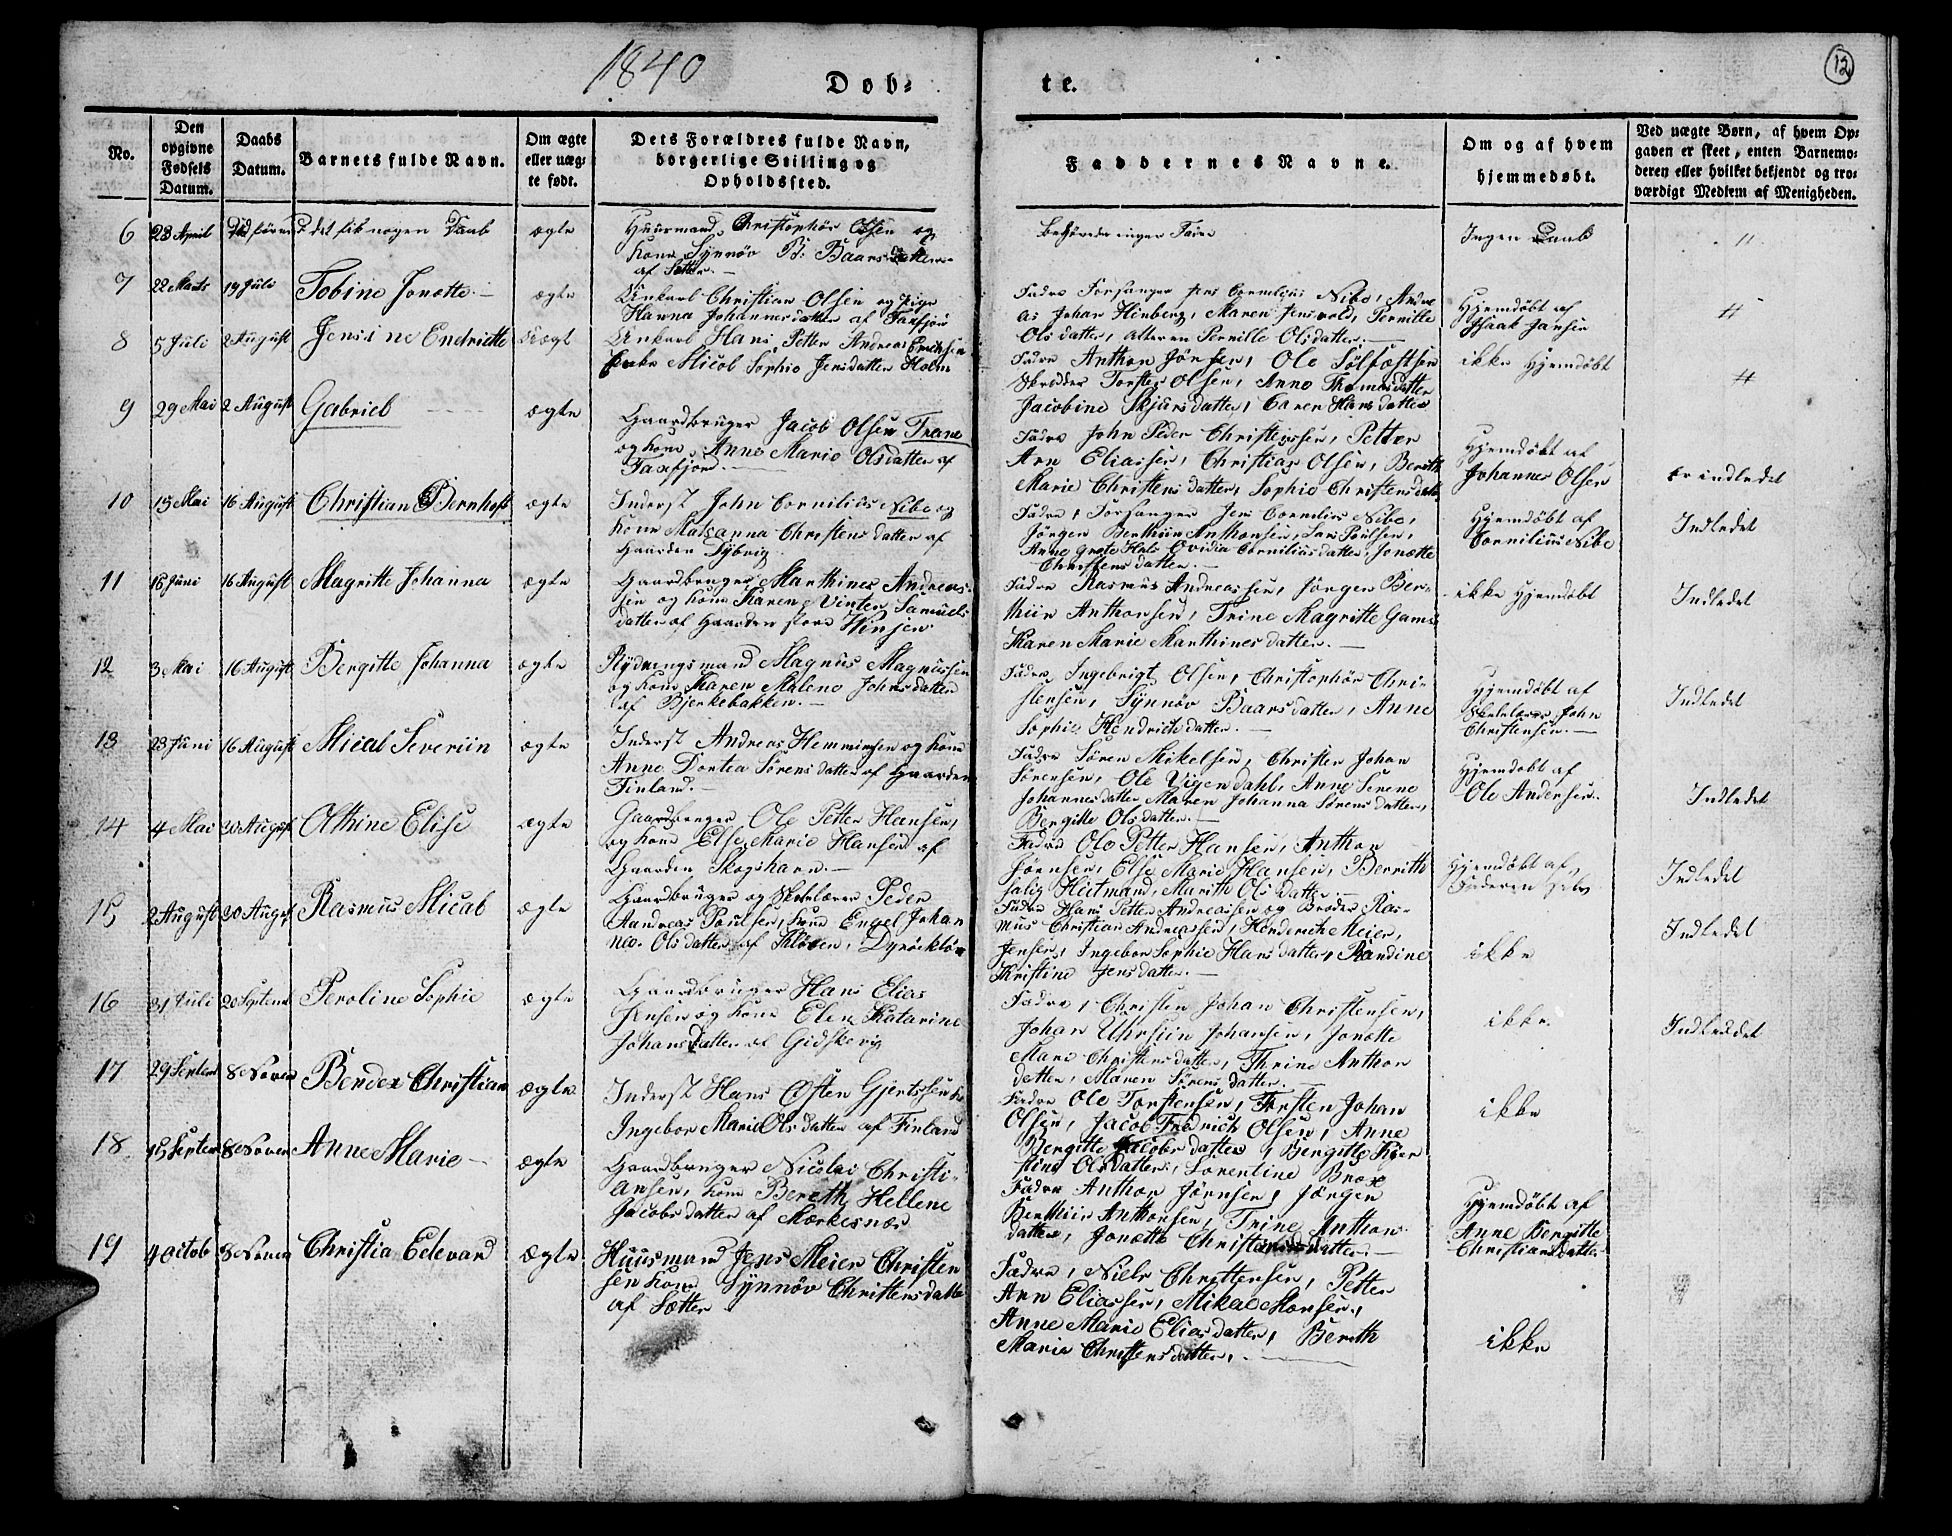 1840
12
Døb-
te.
No.
Den
opgivne
Fødsels
Datum.
Daabs
Datum.
Barnets fulde Navn.
Om ægte
eller uæg-
te født.
Dets Forældres fulde Navn,
borgerlige Stilling og
Opholdssted.
Faddernes Navne.
Om og af hvem
hjemmedøbt.
Ved uægte Børn, af hvem Op-
gaven er skeet, enten Barnemo-
deren eller hvilket bekjendt og tro-
værdigt Medlem af Menigheden.
6 23 April det fik nogen Daab ægte
Huusmand Christophør Olsen og
Kone Synnøv B: Baarsdatter
af Sætter.
Ingen Daab
"
7 22 Marts 19 Juli Tobine Jonette ægte
Unkarl Christian Olsen og pige
Hanna Johannesdatter af Taxfjor
Fadre Forsanger Jens Cornelius Nibe, Andre
as Johan Hinberg, Maren Jensvold, Pernille
Olsdatter, Pernille Olsdatter.
Hjemdøbt af
Isaak Jansen
"
8 5 Juli 2 August Jensine Endriette uægt
Unkarl Hans Petter Andreas Erichsen
Enke Micol Sophie Jensdatter Holm
Fadre Anthon Jørnsen, Ole Sølfæstsen
Skrædder Torsten Olsen, Anne Thomasdatter
Jacobine Skjursdatter, Caren Hansdatter
ikke Hjemdøbt
"
9 29 Mai 2 August Gabriel ægte
Gaardbruger Jacob Olsen Trane
og Kone Anne Marie Olsdatter af
Taxfjord.
Fadre John Peder Christenssen, Petter
Arn Eliassen, Christias Olsen, Berith
Marie Christensdatter, Sophie Christensdatter
Hjemdøbt af
Johannes Olsen
er indledet
10 15 Mai 16 August Christian Bernhoft ægte
Inderst John Cornilius Nibe og
Kone Matsanna Christensdatter af
Gaarden
Fadre, Forsanger Jens Cornelius Nibe,
Jørgen Benthiin Anthonsen, Lars Poulsen,
Anne Grete Hals Ovidia Corniliusdatter, Jonette
Christensdatter.
Hjemdøbt af
Cornilius Nibe
Indledet
11 18 Juni 16 August Magritte Johanna ægte
Gaardbruger Marthines Andreas-
sen og Kone Karen Vinter Samuels
datter af Gaarden store Winjen.
Fadre Rasmus Andreassen, Jørgen Ben-
thiin Anthonsen, Trine Magritte Gams
Karen Marie Marthinesdatter.
ikke Hjemdøbt
Indledet
12 3 Mai 16 August Bergitte Johanna ægte
Rydningsmand Magnus Magnussen
og Kone Karen Malene Johnsdatter
af Bjerkebakken.
Fadre Ingebrigt Olsen, Christophør Chri-
stensen, Synnøv Baarsdatter, Anne
Sophie Hendrichsdatter.
Hjemdøbt af
Skolelærer John
Christensen.
Indledet
13 23 Juni 16 August Mical Severiin ægte
Inderst Andreas Hemmingsen og Kone
Anne Dortea Sørensdatter af Gaarden
Finland.
Fadre Søren Mikelsen, Christen Johan
Sørensen, Ole Vigendahl, Anne Serene
Johannesdatter Maren Johanna Sørensdatter,
Bergitte Olsdatter.
Hjemdøbt af
Ole Andersen.
Indledet
14 4 Mai 30 August Olthine Elise ægte
Gaardbruger Ole Petter Hansen,
og Kone Else Marie Hansen af
Gaarden Skogshavn.
Fadre Ole Petter Hansen, Anthon
Jørnsen, Else Marie Hansen, Berrith
salig Hietmand, Marith Olsdatter.
Hjemdøbt af
Faderen selv
Indledet
15 2 August 30 August Rasmus Mical ægte
Gaardbruger og Skolelærer Peder
Aandreas Poulsen, Kone Engel Johan
nea Olsdatter af Kløven, Dyrøekløv
Fadre Hans Petter Andreassen og Broder Ras-
mus Christian Andreassen, Henderich Meier,
Jensen, Ingebor Sophie Hansdatter, Randine
Kristine Jensdatter.
ikke
Indledet
16 31 Juli 20 Septemb Peroline Sophie ægte
Gaardbruger Hans Elias
Jensen og Kone Elen Katarine
Johansdatter af Gidskevig
Fadre, Christen Johan Christensen,
Johan Uhrsiin Johansen, Jonette
Mare Christensdatter, Thrine Anthon
datter, Maren Sørensdatter.
ikke
Indledet
17 29 Septem 8 Noven Bendex Christian ægte
Inderst Hans Østen Gjertssen
Ingebor Marie Olsdatter af Finland
Fadre Ole Torstensen, Torsten Johan
Olsen, Jacob Fredrich Olsen, Anne
Bergitte Jacobsdatter, Bergitte Kjer
stine Olsdatter, Lorentine Brox
ikke
18 15 Septem 8 Noven Anne Marie ægte
Gaardbruger Nicolai Christi-
ansen, Kone Bereth Hellene
Jacobsdatter af Mærkesnæs
Fadre Anthon Jørnsen, Jørgen
Benthiin Anthonsen, Trine Anthon
datter, Jonette Christiansdatter.
Hjemdøbt af
Anne Bergitte
Christiansdatter
19 4 Octob 8 Noven Christia Edevard ægte
Huusmand Jens Meier Christen
sen Kone Synnøv Christensdatter
af Sætter
Fadre, Niels Christensen, Petter
Arn Eliassen, Mikael Monsen,
Anne Marie Eliasdatter, Bereth
Marie Christensdatter.
ikke